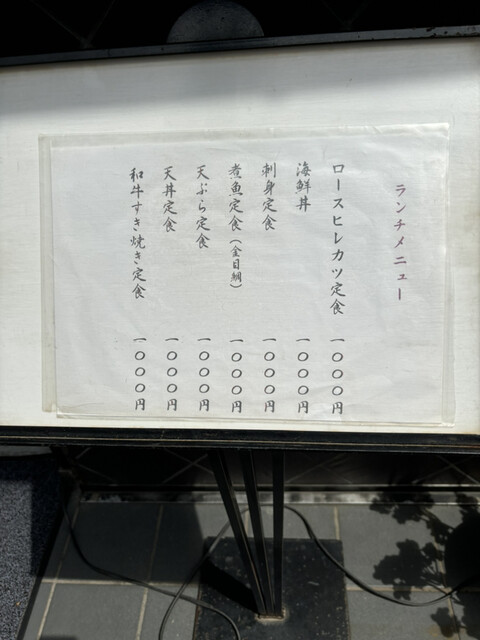 ランチメニュー
ロースヒレカツ定食 一〇〇〇円
海鮮丼 一〇〇〇円
刺身定食 一〇〇〇円
煮魚定食（金目鯛） 一〇〇〇円
天ぷら定食 一〇〇〇円
天丼定食 一〇〇〇円
和牛すき焼き定食 一〇〇〇円